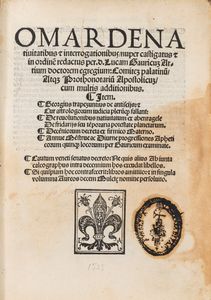 OMAR DE NA
tiuitatibus et interrogationibus, nuper castigatus et
in ordinē redactus per .D. Lucam Gauricum Ar
tium doctorem egregium: Comitez palatinū
Atqz Prothonotariū Apostolicuz
cum multis additionibus.
Item.
Georgius trapezuntius de antisciis et
Cur astrologorum iudicia plerūqz fallant:
De reuolutionibus natiuitatum ex abenragele
De fridariis seu tēporaria potestate planetarum.
Decēniorum decreta ex firmico Materno.
Annue Mēstrue ac Diurne progressiones Apheti
corum quinqz locorum per Gauricum examinate.
Cautum veneti senatus decreto: Ne quis alius Ab iunta
calcographus intra decennium hos excudat libellos.
Si quispiam hoc contrafecerit: libros amittito: et in singula
volumina Aureos decem Mulcte nomine persoluito.